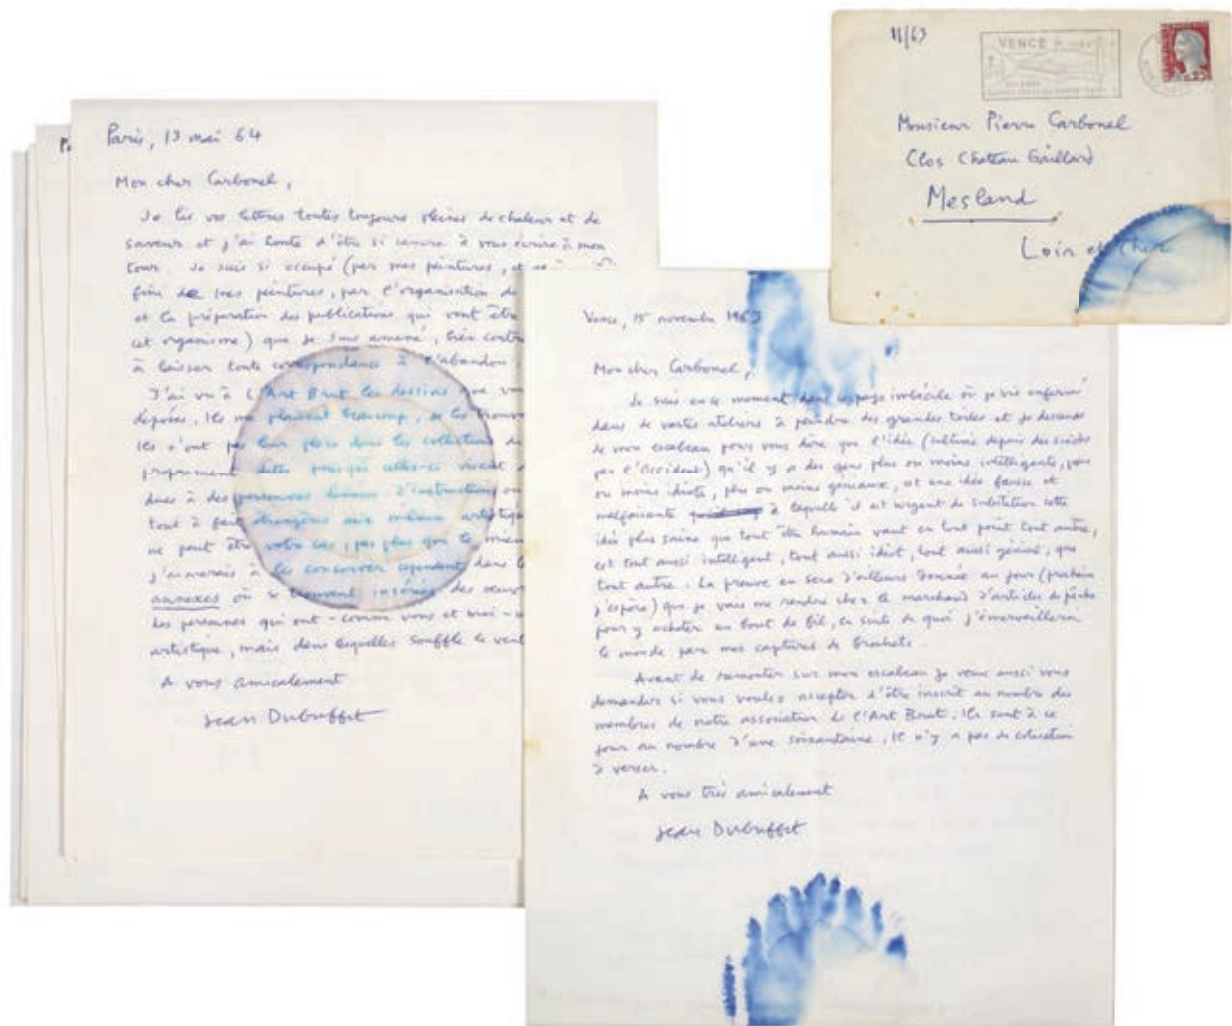 Paris, 13 mai 64
Mon cher Carbonel,
Je lis vos lettres toutes toujours pleines de chaleur et de
saveur et j'ai honte d'être si à vous écrire à mon
tour. Je suis si occupé (par mes peintures, et
de mes peintures, par l'organisation de
et la préparation des publications qui vont être
cet organisme) que je suis amené, très contre
à laisser toute correspondance à l'abandon.
J'ai vu à l'Art Brut les dessins que vous
déposés. Ils me plaisent beaucoup, je les trouve
Ils n'ont pas leur place dans les collections
proprement dites puisque celles-ci visent
dues à des personnes d'instruction ou
tout à fait étrangères aux milieux artistique
ne peut être votre cas, pas plus que le mien
j'aimerais à les conserver cependant dans l
annexes où se trouvent insérées des oeuvr
des personnes qui ont - comme vous et moi -
artistique, mais dans lesquelles souffle le vent
A vous amicalement
Jean Dubuffet
11/63
VENCE
Monsieur Pierre Carbonel
Clos Chateau Gaillard
Mesland
Loir et Cher
Vence, 15 novembre 1963
Mon cher Carbonel,
Je suis en ce moment dans ce pays imbécile où je vis enfermé
dans de vastes ateliers à peindre des grandes toiles et je descends
de mon escabeau pour vous dire que l'idée (cultivée depuis des siècles
par l'Occident) qu'il y a des gens plus ou moins intelligents, plus
ou moins idiots, plus ou moins géniaux, est une idée fausse et
malfaisante à laquelle il est urgent de substituer cette
idée plus saine que tout être humain vaut en tout point tout autre,
est tout aussi intelligent, tout aussi idiot, tout aussi génial, que
tout autre. La preuve en sera d'ailleurs donnée au jour (prochain
j'espère) que je vais me rendre chez le marchand d'articles de pêche
pour y acheter un bout de fil, en suite de quoi j'émerveillerai
le monde par mes captures de brochets.
Avant de remonter sur mon escabeau je veux aussi vous
demander si vous voulez accepter d'être inscrit au nombre des
membres de notre association de l'Art Brut. Ils sont à ce
jour au nombre d'une soixantaine, il n'y a pas de cotisation
à verser.
A vous très amicalement
Jean Dubuffet